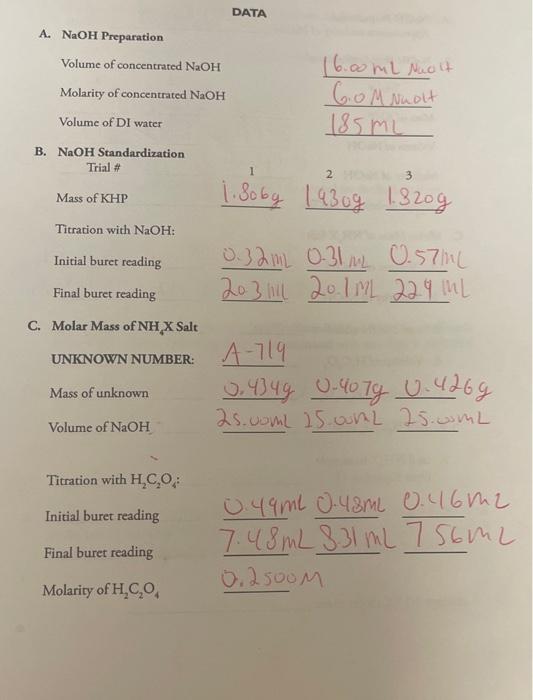 DATA
A. NaOH Preparation
Volume of concentrated NaOH 16.00 mL NaOH
Molarity of concentrated NaOH 6.0 M NaOH
Volume of DI water 185 mL
B. NaOH Standardization
Trial # 1 2 3
Mass of KHP 1.806g 1.830g 1.820g
Titration with NaOH:
Initial buret reading 0.32 mL 0.31 mL 0.57 mL
Final buret reading 20.3 mL 20.1 mL 22.9 mL
C. Molar Mass of NH₄X Salt
UNKNOWN NUMBER: A-719
Mass of unknown 0.434g 0.407g 0.426g
Volume of NaOH 25.00mL 25.00mL 25.00mL
Titration with H₂C₂O₄:
Initial buret reading 0.49mL 0.48mL 0.46mL
Final buret reading 7.48mL 8.31 mL 7.56mL
Molarity of H₂C₂O₄ 0.2500M